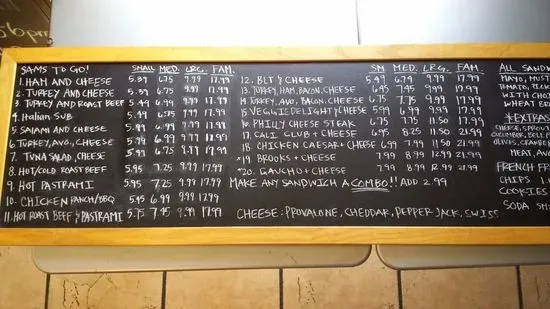 6pm
SAMS TO GO! SMALL MED. LRG. FAM.
1. HAM AND CHEESE 5.39 6.75 9.99 17.99
2. TURKEY AND CHEESE 5.39 6.75 9.99 17.99
3. TURKEY AND ROAST BEEF 5.49 6.99 9.99 17.99
4. Italian SUB
5. SALAMI AND CHEESE
6. TURKEY, AVO, CHEESE
7. TUNA SALAD, CHEESE
8. HOT/COLD ROAST BEEF 5.95 7.25 9.99 17.99
9. HOT PASTRAMI 5.95 7.25 9.99 17.99
10. CHICKEN RANCH/BBQ 5.95 6.99 9.99 17.99
11. HOT ROAST BEEF & PASTRAMI 5.75 7.45 9.99 17.99
SM MED. LRG. FAM.
12. BLT & CHEESE 5.49 6.79 9.99 17.99
13. TURKEY, HAM, BACON, CHEESE 6.95 7.95 9.99 17.99
14. TURKEY, AVO, BACON, CHEESE 6.75 7.75 9.99 17.99
15. VEGGIE DELIGHT & CHEESE 5.99 6.99 9.99 17.99
16. PHILLY CHEESE STEAK
17. CALI. CLUB + CHEESE 6.95 8.25 11.50 21.99
18. CHICKEN CAESAR + CHEESE 6.99 7.99 11.50 21.99
*19. BROOKS + CHEESE 7.99 8.99 12.99 21.99
*20. GAUCHO + CHEESE 7.99 8.99 12.99 21.99
MAKE ANY SANDWICH A COMBO!! ADD 2.99
CHEESE: PROVALONE, CHEDDAR, PEPPER JACK, SWISS
ALL SANDW
MAYO, MUST
TOMATO,
WITH
WHEAT
*EXTRAS
CHEESE, SPROU
CUCUMBER, BELL
OLIVES, CRANBER
MEAT, AV
FRENCH FR
CHIPS
COOKIES
SODA SM